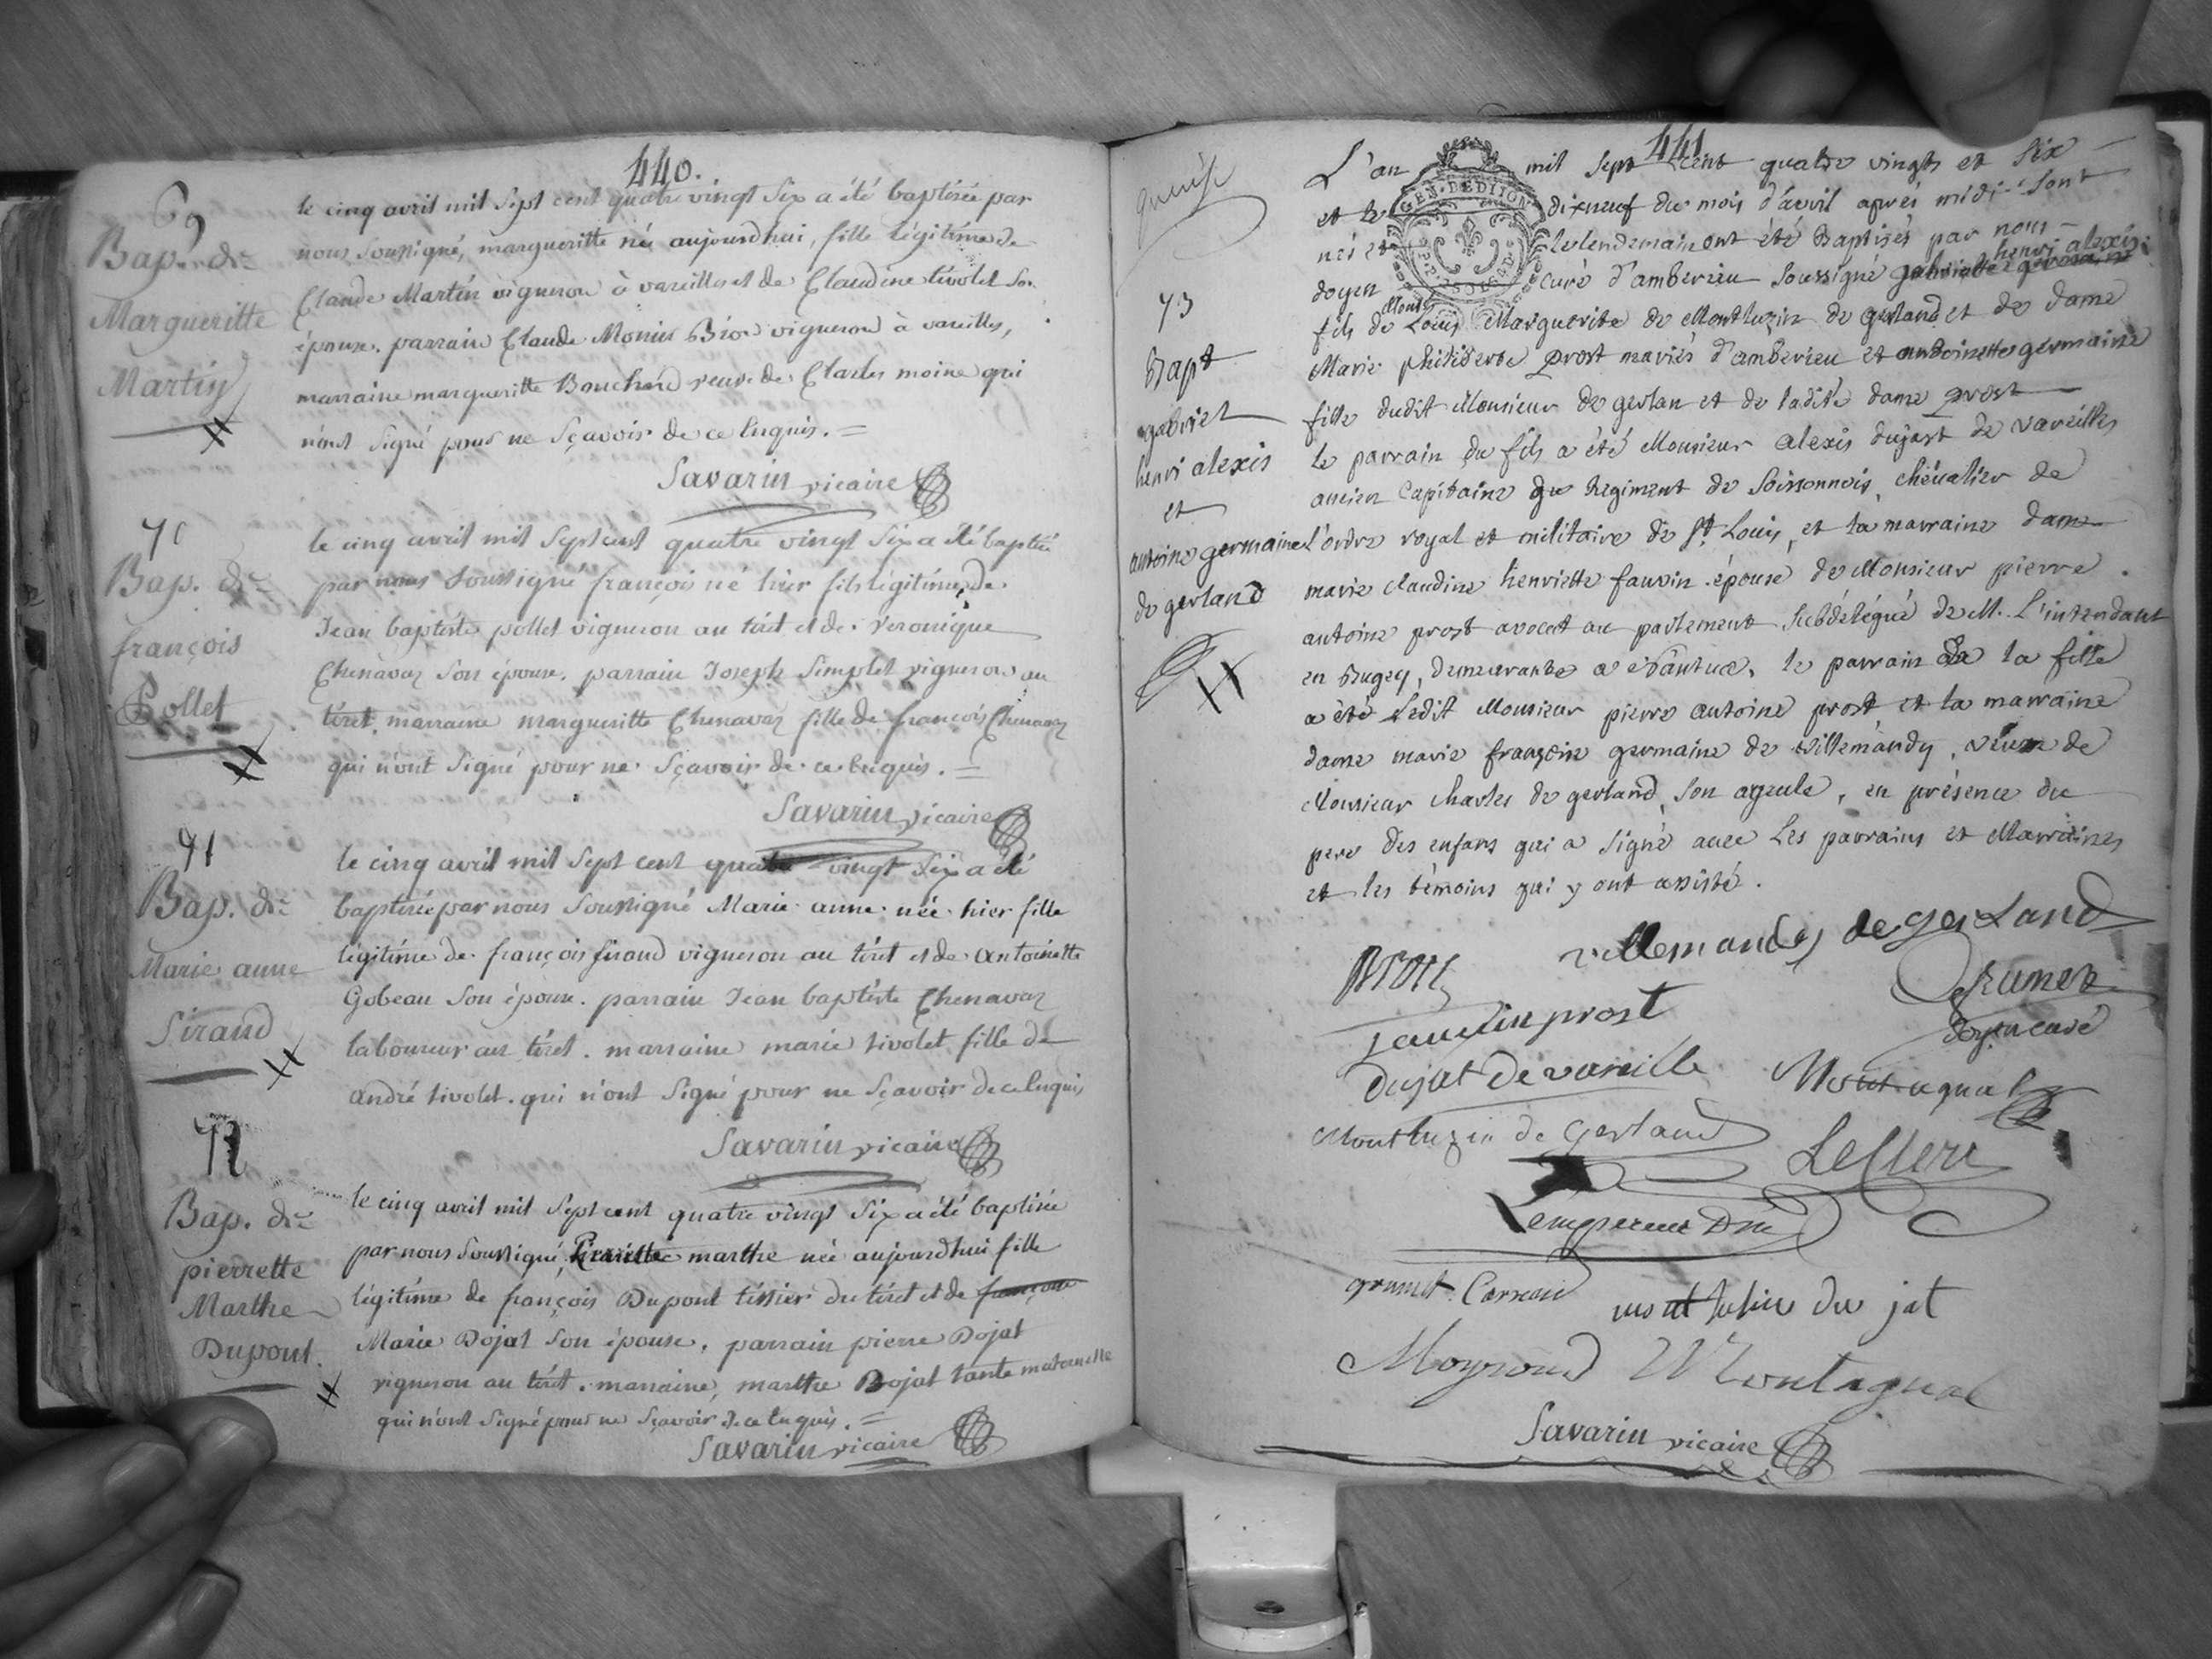 440.
69
Bap. de
Margueritte
Martin
le cinq avril mil sept cent quatre vingt six a été baptisée par
nous soussigné, margueritte née aujourd'hui, fille légitime de
Claude Martin vigneron à vareilles et de Claudine tivolet son
épouse. parrain Claude Monin vigneron à vareilles,
marraine margueritte Bouchard veuve de Charles moine qui
n'ont signé pour ne sçavoir de ce enquis. =
Savarin vicaire
70
Bap. de
françois
Pollet
le cinq avril mil sept cent quatre vingt six a été baptisé
par nous soussigné françois né hier fils légitime de
Jean baptiste pollet vigneron au tiret et de veronique
Chenavaz son épouse. parrain Joseph Simplet vigneron au
tiret. marraine margueritte Chenavaz fille de françois Chenavaz
qui n'ont signé pour ne sçavoir de ce enquis. =
Savarin vicaire
71
Bap. de
Marie anne
Sirand
le cinq avril mil sept cent quatre vingt six a été
baptisée par nous soussigné Marie anne née hier fille
légitime de françois sirand vigneron au tiret et de antoinette
Gobeau son épouse. parrain Jean baptiste Chenavaz
laboureur au tiret. marraine marie tivolet fille de
andré tivolet. qui n'ont signé pour ne sçavoir de ce enquis
Savarin vicaire
72
Bap. de
pierrette
Marthe
Dupont.
le cinq avril mil sept cent quatre vingt six a été baptisée
par nous soussigné, Pierrette marthe née aujourd'hui fille
légitime de françois Dupont tissier du tiret et de françoise
Marie Dojat son épouse. parrain pierre Dojat
vigneron au tiret. marraine, marthe Dojat tante maternelle
qui n'ont signé pour ne sçavoir de ce enquis. =
Savarin vicaire
441
GEN. DE DIJON
73
Bapt
gabriel
henri alexis
et
antoine germaine
de gerland
L'an mil sept cent quatre vingts et six
et le dixneuf du mois d'avril aprés midi sont
nés et le lendemain ont été Baptisés par nous
doyen curé d'amberieu soussigné henri alexis
fils de Louis Marguerite de Montluzin de gerland et de dame
Marie philiberte prost mariés d'amberieu et antoinette germaine
fille dudit Monsieur de gerlan et de ladite dame prost
le parrain du fils a été Monsieur alexis dujast de vareilles
ancien Capitaine du Regiment de Soissonnois, chevalier de
l'ordre royal et militaire de St Louis, et la marraine dame
marie claudine henriette fauvin épouse de Monsieur pierre
antoine prost avocat au parlement subdélégué de M. L'intendant
en Bugey, demeurante a Nantua. le parrain de la fille
a été Ledit Monsieur pierre antoine prost et la marraine
dame marie françoise germaine de villemandy, veuve de
Monsieur charles de gerland, son ayeule, en présence du
pere des enfans qui a signé avec les parrains et Marraines
et les témoins qui y ont assisté.
villemandy de gerland
Prost
grumet
doyen curé
fauvin prost
Dujat De vareille
Montagnat
Montluzin de Gerland
LeClerc
grumet
du jat
Moyroud
Montagnat
Savarin vicaire